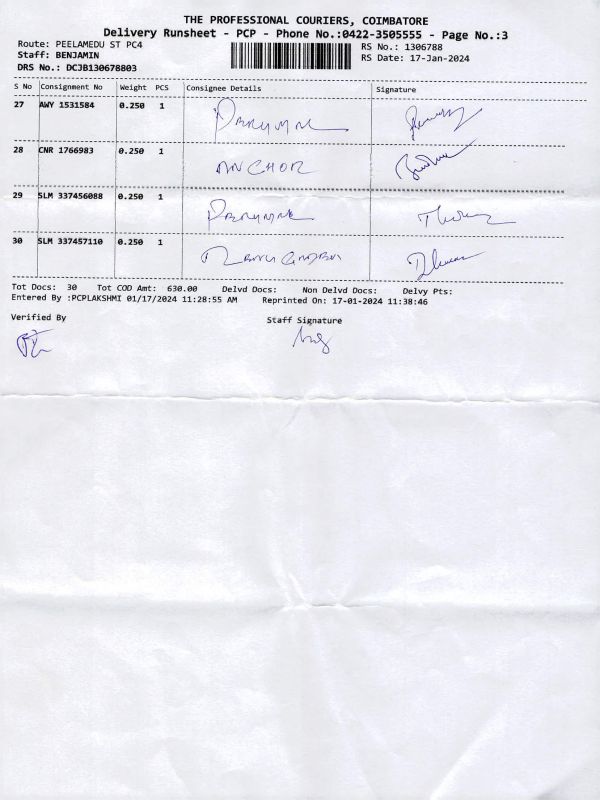 THE PROFESSIONAL COURIERS, COIMBATORE
Delivery Runsheet - PCP - Phone No.:0422-3505555 - Page No.:3
Route: PEELAMEDU ST PC4 RS No.: 1306788
Staff: BENJAMIN RS Date: 17-Jan-2024
DRS No.: DCJB130678803
S No Consignment No Weight PCS Consignee Details Signature
27 AWY 1531584 0.250 1
28 CNR 1766983 0.250 1 ANCHOR
29 SLM 337456088 0.250 1
30 SLM 337457110 0.250 1
Tot Docs: 30 Tot COD Amt: 630.00 Delvd Docs: Non Delvd Docs: Delvy Pts:
Entered By :PCPLAKSHMI 01/17/2024 11:28:55 AM Reprinted On: 17-01-2024 11:38:46
Verified By Staff Signature